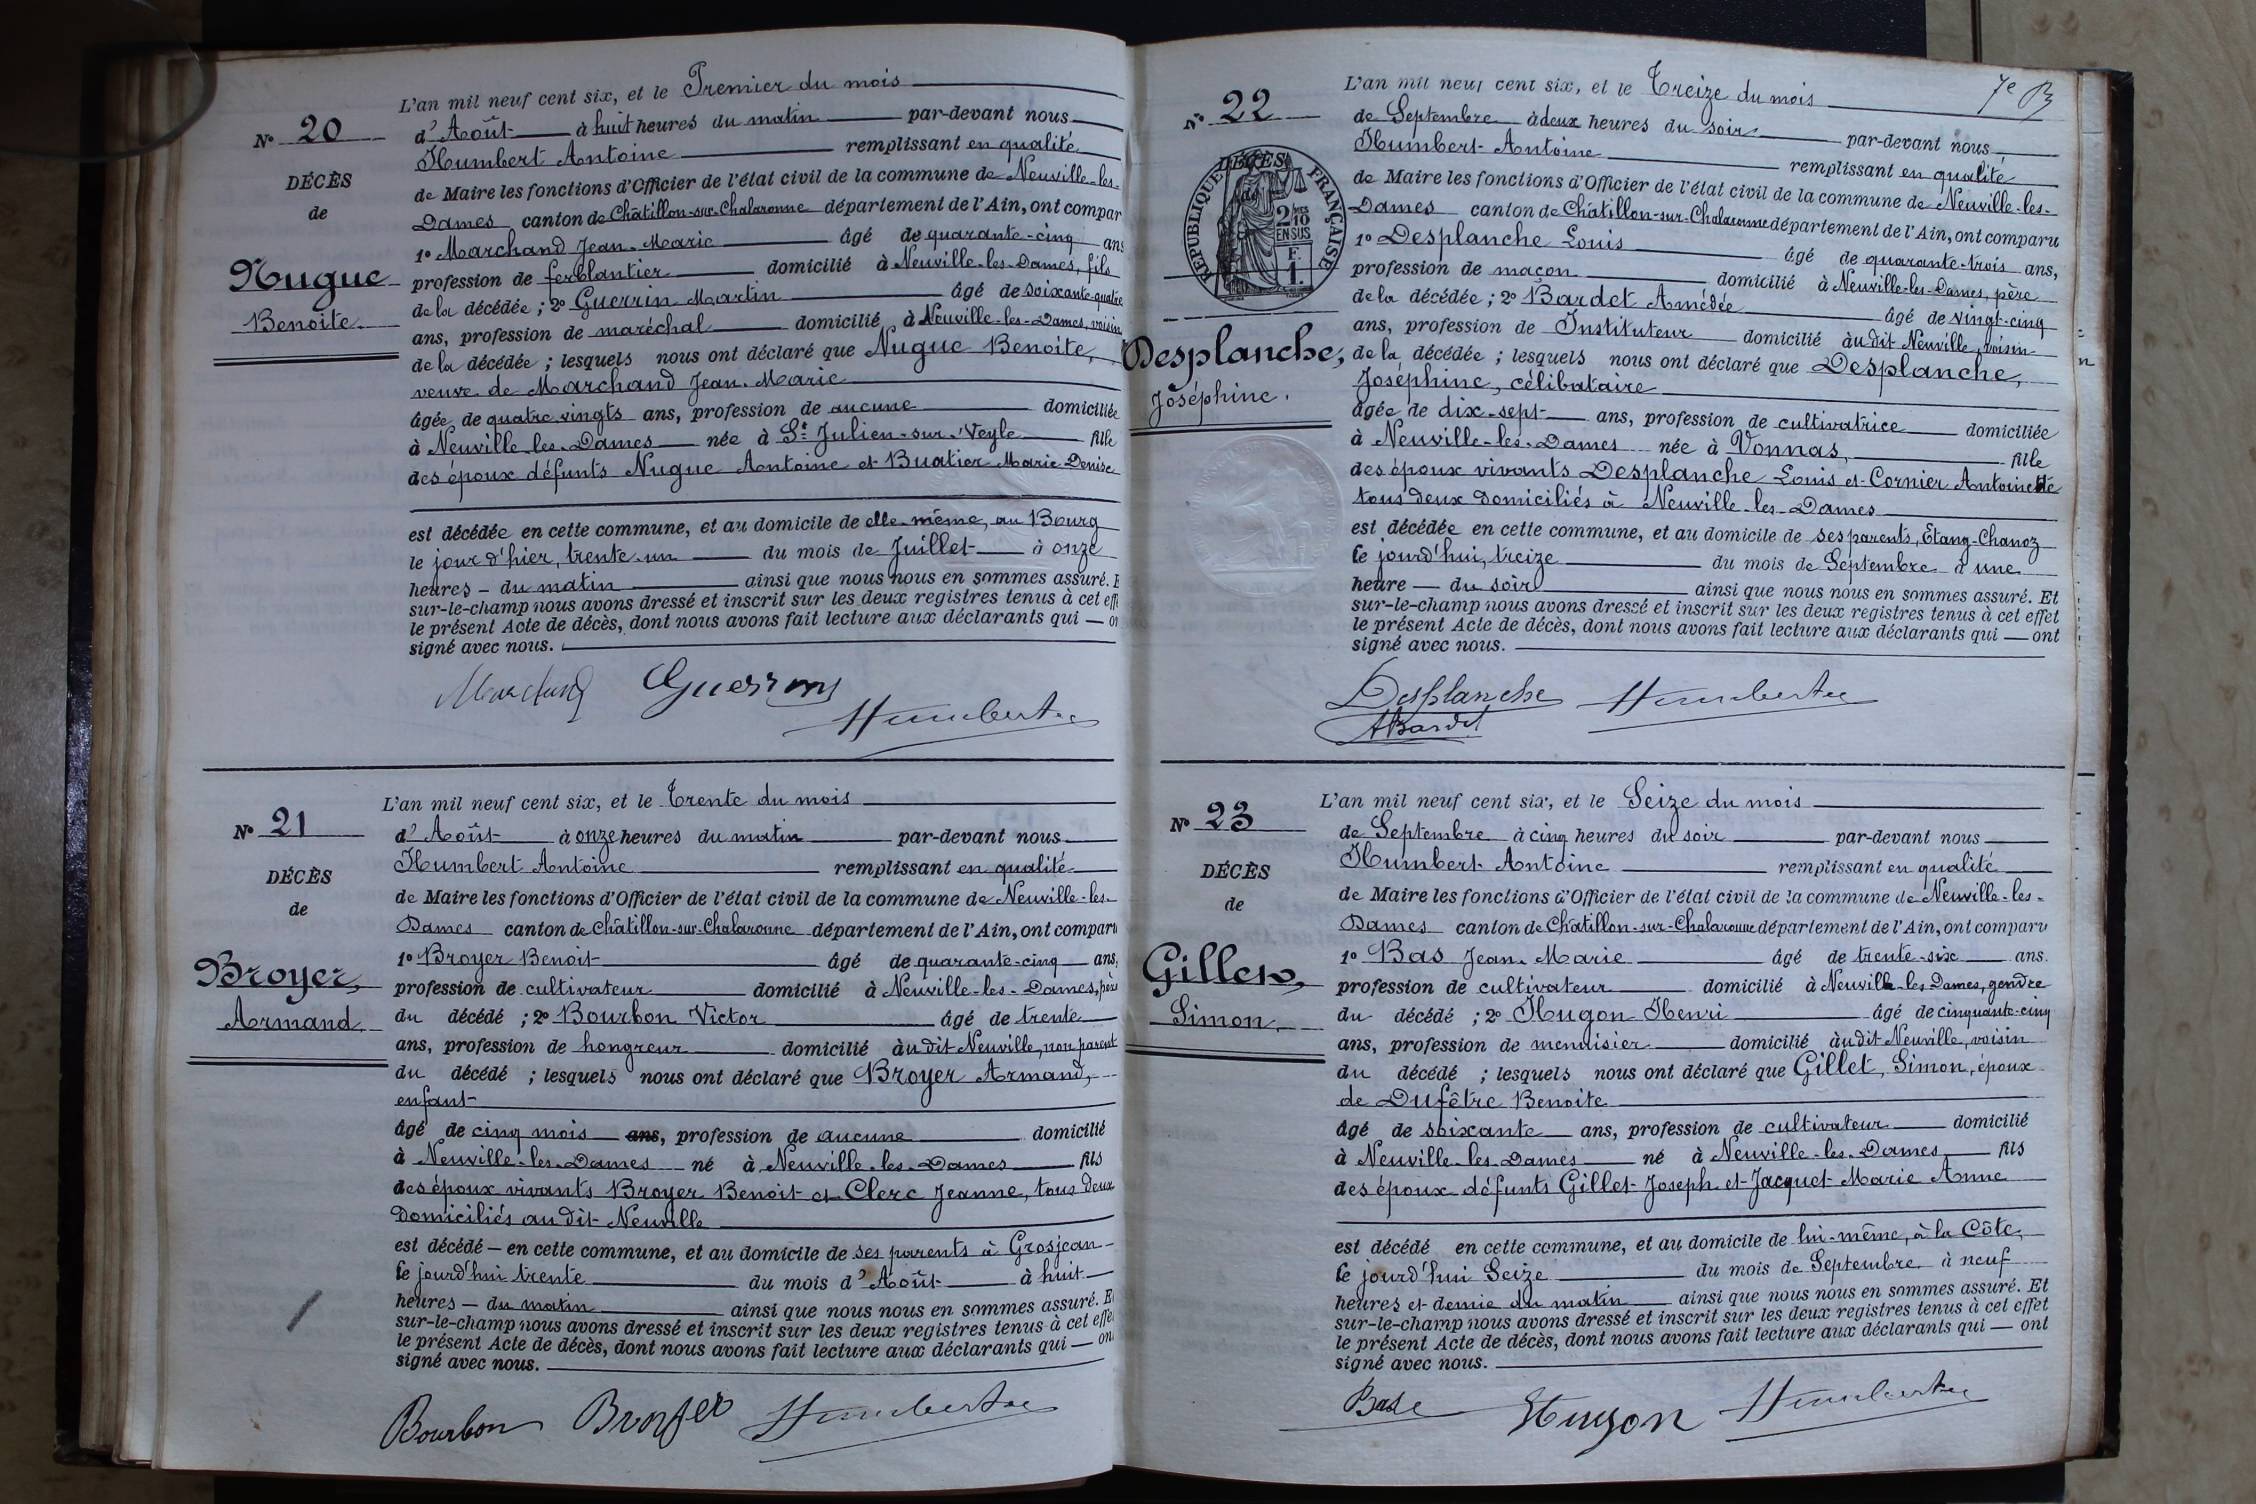 L'an mil neuf cent six, et le Premier du mois
N° 20
d'Août à huit heures du matin par-devant nous
Humbert Antoine remplissant en qualité
DÉCÈS
de Maire les fonctions d'Officier de l'état civil de la commune de Neuville-les-
de
Dames canton de Châtillon-sur-Chalaronne département de l'Ain, ont compar
1° Marchand Jean-Marie âgé de quarante-cinq ans
Nugue
profession de ferblantier domicilié à Neuville-les-Dames, fils
Benoite.
de la décédée ; 2° Guerrin Martin âgé de soixante-quatre
ans, profession de maréchal domicilié à Neuville-les-Dames, voisin
de la décédée ; lesquels nous ont déclaré que Nugue Benoite,
veuve de Marchand Jean-Marie
âgée de quatre-vingts ans, profession de aucune domiciliée
à Neuville-les-Dames née à St Julien-sur-Veyle fille
des époux défunts Nugue Antoine et Buatier Marie Denise
est décédée en cette commune, et au domicile de elle-même, au Bourg
le jour d'hier, trente-un du mois de Juillet à onze
heures – du matin ainsi que nous nous en sommes assuré. E
sur-le-champ nous avons dressé et inscrit sur les deux registres tenus à cet eff
le présent Acte de décès, dont nous avons fait lecture aux déclarants qui — on
signé avec nous.
Marchand Guerrin
Humbert
L'an mil neuf cent six, et le Trente du mois
N° 21
d'Août à onze heures du matin par-devant nous
Humbert Antoine remplissant en qualité
DÉCÈS
de Maire les fonctions d'Officier de l'état civil de la commune de Neuville-les-
de
Dames canton de Châtillon-sur-Chalaronne département de l'Ain, ont comparu
1° Broyer Benoit âgé de quarante-cinq ans,
Broyer,
profession de cultivateur domicilié à Neuville-les-Dames, père
Armand
du décédé ; 2° Bourbon Victor âgé de trente
ans, profession de hongreur domicilié àudit Neuville, non parent
du décédé ; lesquels nous ont déclaré que Broyer Armand,
enfant
âgé de cinq mois ans, profession de aucune domicilié
à Neuville-les-Dames né à Neuville-les-Dames fils
des époux vivants Broyer Benoit et Clerc Jeanne, tous deux
domiciliés audit Neuville
est décédé – en cette commune, et au domicile de ses parents à Grosjean
le jourd'hui trente du mois d'Août à huit
heures – du matin ainsi que nous nous en sommes assuré. E
sur-le-champ nous avons dressé et inscrit sur les deux registres tenus à cet effe
le présent Acte de décès, dont nous avons fait lecture aux déclarants qui — on
signé avec nous.
Bourbon Broyer Humbert
7e
L'an mil neuf cent six, et le Treize du mois
N° 22
de Septembre à deux heures du soir par-devant nous
Humbert Antoine remplissant en qualité
RÉPUBLIQUE FRANÇAISE
DÉCÈS
de
2/10 EN SUS
F. 1.
de Maire les fonctions d'Officier de l'état civil de la commune de Neuville-les-
Dames canton de Châtillon-sur-Chalaronne département de l'Ain, ont comparu
1° Desplanche Louis âgé de quarante-trois ans,
profession de maçon domicilié à Neuville-les-Dames, père
de la décédée ; 2° Bardet Amédée âgé de vingt-cinq
ans, profession de Instituteur domicilié àudit Neuville, voisin
Desplanche,
de la décédée ; lesquels nous ont déclaré que Desplanche,
Joséphine.
Joséphine, célibataire
âgée de dix-sept ans, profession de cultivatrice domiciliée
à Neuville-les-Dames née à Vonnas, fille
des époux vivants Desplanche Louis et Cornier Antoinette
tous deux domiciliés à Neuville-les-Dames
est décédée en cette commune, et au domicile de ses parents, Etang-Chanoz
le jourd'hui, treize du mois de Septembre à une
heure — du soir ainsi que nous nous en sommes assuré. Et
sur-le-champ nous avons dressé et inscrit sur les deux registres tenus à cet effet
le présent Acte de décès, dont nous avons fait lecture aux déclarants qui — ont
signé avec nous.
Desplanche Humbert
ABardet
L'an mil neuf cent six, et le Seize du mois
N° 23
de Septembre à cinq heures du soir par-devant nous
Humbert Antoine remplissant en qualité
DÉCÈS
de Maire les fonctions d'Officier de l'état civil de la commune de Neuville-les-
de
Dames canton de Châtillon-sur-Chalaronne département de l'Ain, ont comparu
1° Bas Jean-Marie âgé de trente-six ans.
Gillet,
profession de cultivateur domicilié à Neuville-les-Dames, gendre
Simon,
du décédé ; 2° Hugon Henri âgé de cinquante-cinq
ans, profession de menuisier domicilié àudit Neuville, voisin
du décédé ; lesquels nous ont déclaré que Gillet, Simon, époux
de Dufêtre Benoite
âgé de soixante ans, profession de cultivateur domicilié
à Neuville-les-Dames né à Neuville-les-Dames fils
des époux défunts Gillet Joseph et Jacquet Marie Anne
est décédé en cette commune, et au domicile de lui-même, à la Côte,
le jourd'hui Seize du mois de Septembre à neuf
heures et demie du matin ainsi que nous nous en sommes assuré. Et
sur-le-champ nous avons dressé et inscrit sur les deux registres tenus à cet effet
le présent Acte de décès, dont nous avons fait lecture aux déclarants qui — ont
signé avec nous.
Bas Hugon Humbert